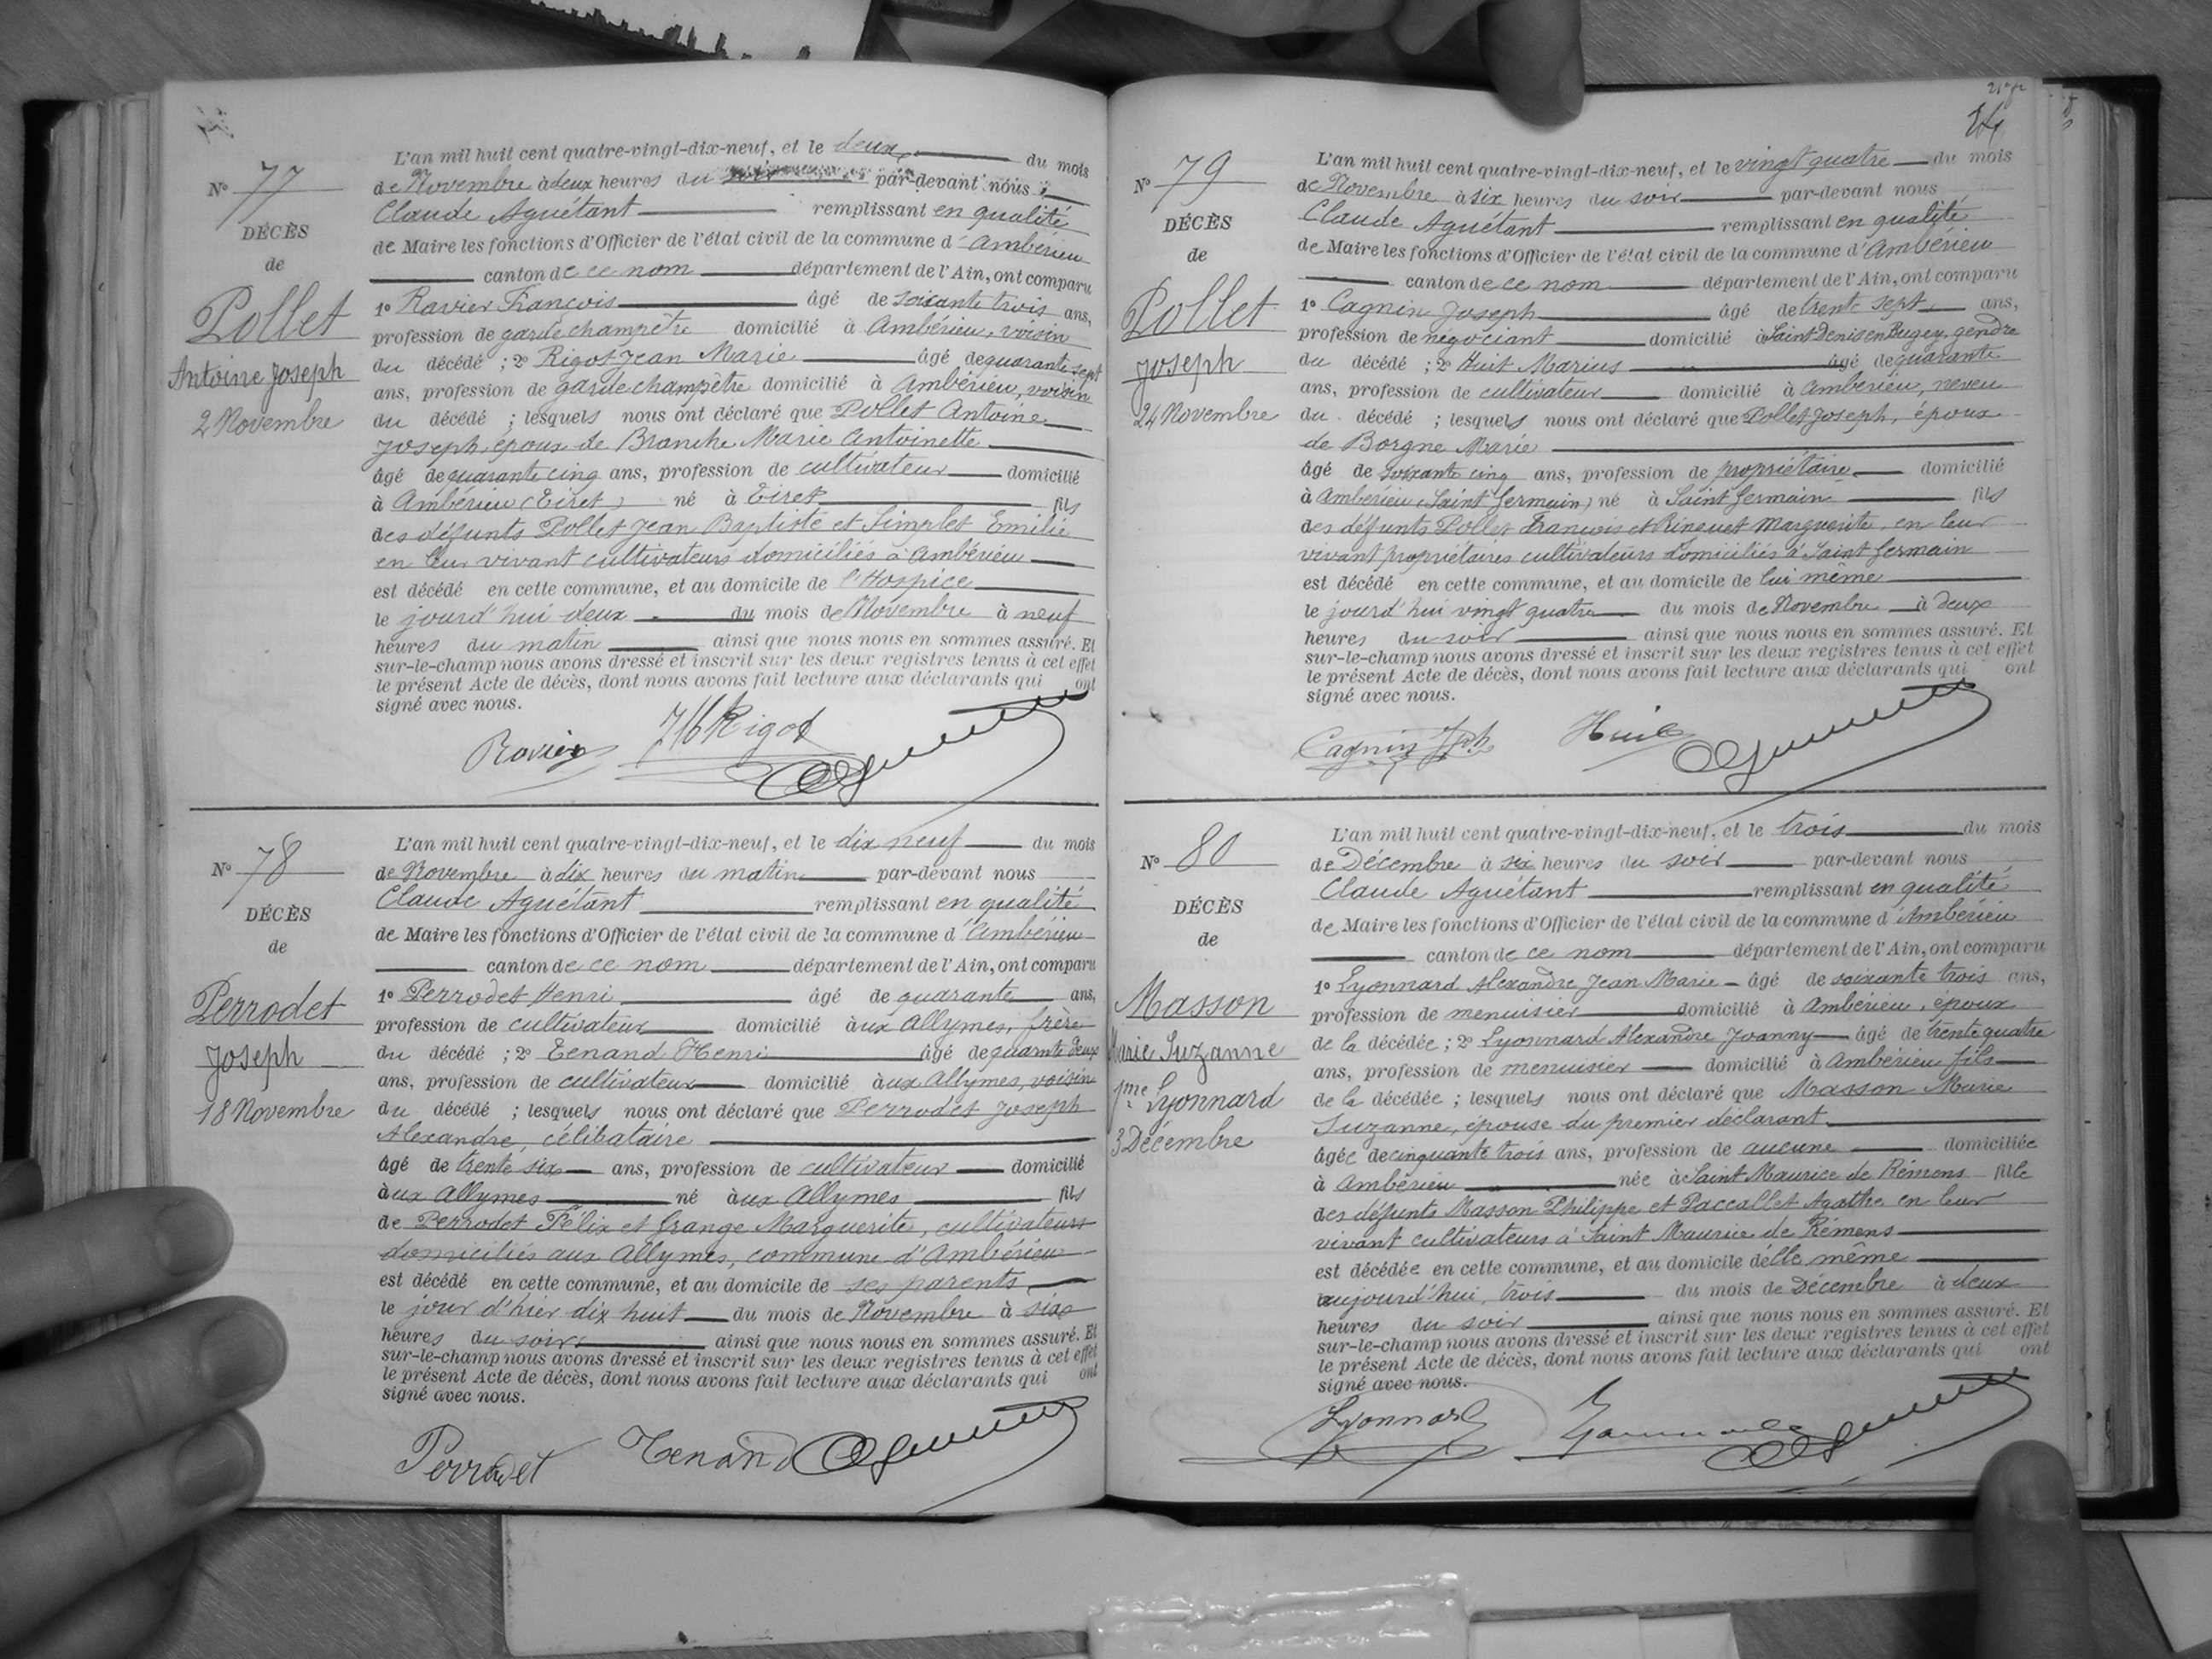 N° 77
DÉCÈS
de
Pollet
Antoine Joseph
2 Novembre
L'an mil huit cent quatre-vingt-dix-neuf, et le deux du mois
de Novembre à deux heures du soir par-devant nous
Claude Aguétant remplissant en qualité
de Maire les fonctions d'Officier de l'état civil de la commune d'Ambérieu
canton de ce nom département de l'Ain, ont comparu
1° Ravier François âgé de soixante trois ans,
profession de garde champêtre domicilié à Ambérieu, voisin
du décédé ; 2° Rigot Jean Marie âgé de quarante sept
ans, profession de garde champêtre domicilié à Ambérieu, voisin
du décédé ; lesquels nous ont déclaré que Pollet Antoine
Joseph, époux de Branche Marie Antoinette
âgé de quarante cinq ans, profession de cultivateur domicilié
à Ambérieu (Tiret) né à Tiret fils
des défunts Pollet Jean Baptiste et Simplet Emilie
en leur vivant cultivateurs domiciliés à Ambérieu
est décédé en cette commune, et au domicile de l'Hospice
le jourd'hui deux du mois de Novembre à neuf
heures du matin ainsi que nous nous en sommes assuré. Et
sur-le-champ nous avons dressé et inscrit sur les deux registres tenus à cet effet
le présent Acte de décès, dont nous avons fait lecture aux déclarants qui ont
signé avec nous.
Ravier JM Rigot
N° 78
DÉCÈS
de
Perrodet
Joseph
18 Novembre
L'an mil huit cent quatre-vingt-dix-neuf, et le dix neuf du mois
de Novembre à dix heures du matin par-devant nous
Claude Aguétant remplissant en qualité
de Maire les fonctions d'Officier de l'état civil de la commune d'Ambérieu
canton de ce nom département de l'Ain, ont comparu
1° Perrodet Henri âgé de quarante ans,
profession de cultivateur domicilié aux Allymes, frère
du décédé ; 2° Tenand Henri âgé de quarante deux
ans, profession de cultivateur domicilié aux Allymes, voisin
du décédé ; lesquels nous ont déclaré que Perrodet Joseph
Alexandre, célibataire
âgé de trente six ans, profession de cultivateur domicilié
aux Allymes né aux Allymes fils
de Perrodet Félix et Grange Marguerite, cultivateurs
domiciliés aux Allymes, commune d'Ambérieu
est décédé en cette commune, et au domicile de ses parents
le jour d'hier dix huit du mois de Novembre à six
heures du soir ainsi que nous nous en sommes assuré. Et
sur-le-champ nous avons dressé et inscrit sur les deux registres tenus à cet effet
le présent Acte de décès, dont nous avons fait lecture aux déclarants qui ont
signé avec nous.
Perrodet Tenand
N° 79
DÉCÈS
de
Pollet
Joseph
24 Novembre
L'an mil huit cent quatre-vingt-dix-neuf, et le vingt quatre du mois
de Novembre à six heures du soir par-devant nous
Claude Aguétant remplissant en qualité
de Maire les fonctions d'Officier de l'état civil de la commune d'Ambérieu
canton de ce nom département de l'Ain, ont comparu
1° Cagnin Joseph âgé de trente sept ans,
profession de négociant domicilié à Saint Denis en Bugey, gendre
du décédé ; 2° Huit Marius âgé de quarante
ans, profession de cultivateur domicilié à Ambérieu, neveu
du décédé ; lesquels nous ont déclaré que Pollet Joseph, époux
de Borgne Marie
âgé de soixante cinq ans, profession de propriétaire domicilié
à Ambérieu (Saint Germain) né à Saint Germain fils
des défunts Pollet François et Ringuet Marguerite, en leur
vivant propriétaires cultivateurs domiciliés à Saint Germain
est décédé en cette commune, et au domicile de lui même
le jourd'hui vingt quatre du mois de Novembre à deux
heures du soir ainsi que nous nous en sommes assuré. Et
sur-le-champ nous avons dressé et inscrit sur les deux registres tenus à cet effet
le présent Acte de décès, dont nous avons fait lecture aux déclarants qui ont
signé avec nous.
Cagnin Jph
N° 80
DÉCÈS
de
Masson
Marie Suzanne
fme Lyonnard
3 Décembre
L'an mil huit cent quatre-vingt-dix-neuf, et le trois du mois
de Décembre à six heures du soir par-devant nous
Claude Aguétant remplissant en qualité
de Maire les fonctions d'Officier de l'état civil de la commune d'Ambérieu
canton de ce nom département de l'Ain, ont comparu
1° Lyonnard Alexandre Jean Marie âgé de soixante trois ans,
profession de menuisier domicilié à Ambérieu, époux
de la décédée ; 2° Lyonnard Alexandre Joanny âgé de trente quatre
ans, profession de menuisier domicilié à Ambérieu fils
de la décédée ; lesquels nous ont déclaré que Masson Marie
Suzanne, épouse du premier déclarant
âgée de cinquante trois ans, profession de aucune domiciliée
à Ambérieu née à Saint Maurice de Rémens fille
des défunts Masson Philippe et Paccallet Agathe en leur
vivant cultivateurs à Saint Maurice de Rémens
est décédée en cette commune, et au domicile d'elle même
aujourd'hui, trois du mois de Décembre à deux
heures du soir ainsi que nous nous en sommes assuré. Et
sur-le-champ nous avons dressé et inscrit sur les deux registres tenus à cet effet
le présent Acte de décès, dont nous avons fait lecture aux déclarants qui ont
signé avec nous.
Lyonnard